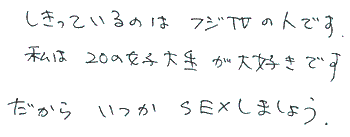 しきっているのは フジTVの人です.
私は 20の女子大生 が大好きです
だから いつか SEXしましょう.